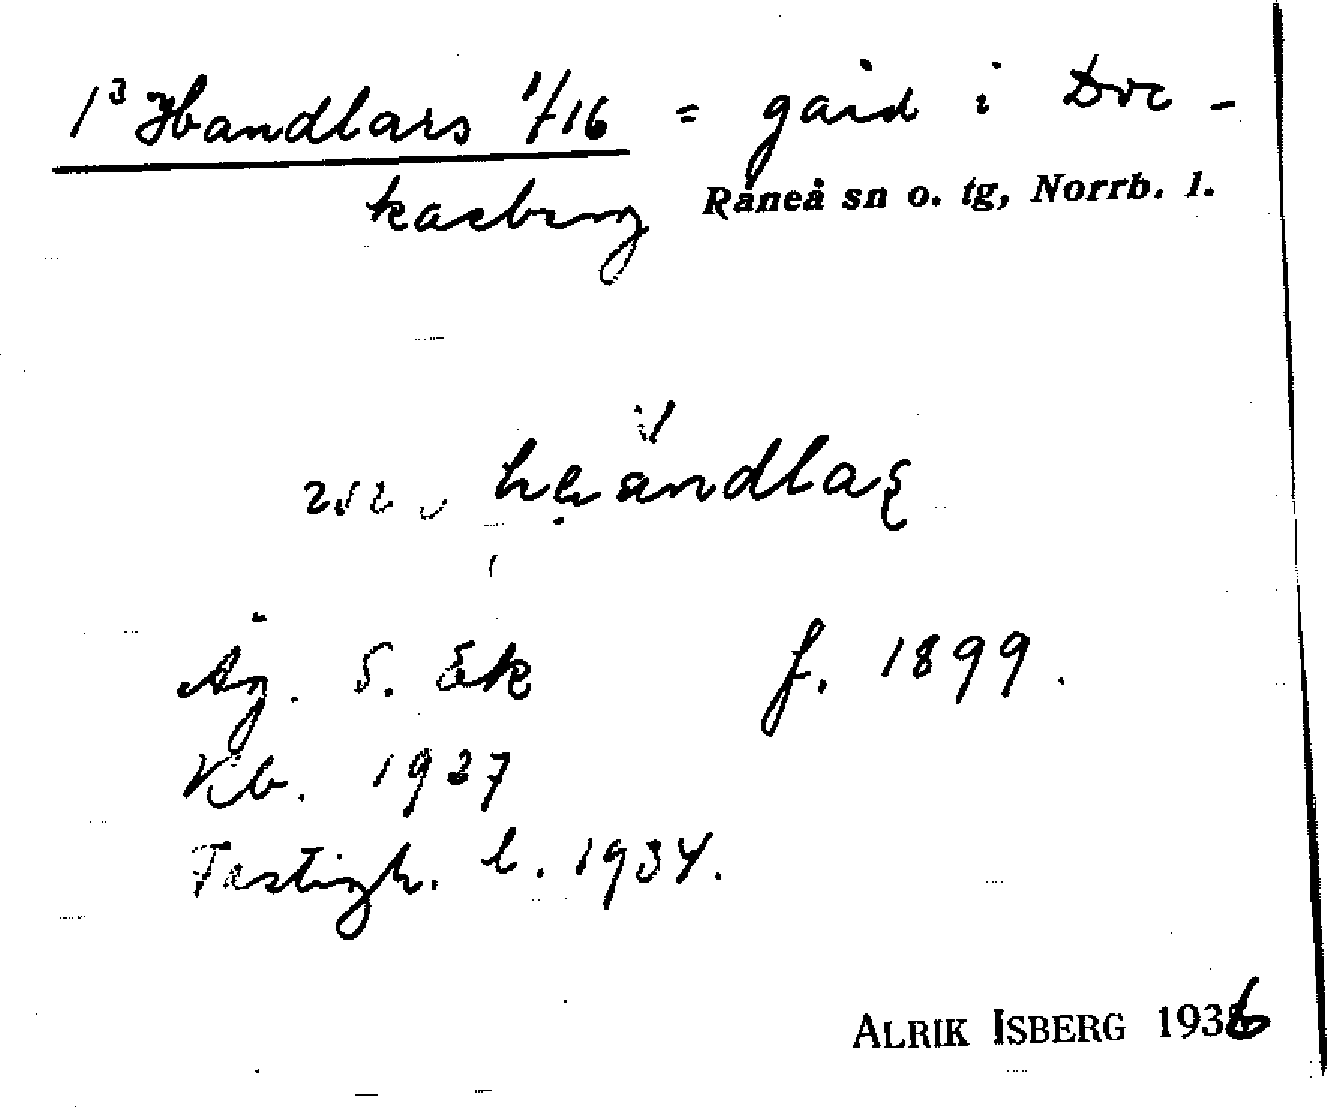 1³ Handlars 1/16 = gård i Dvc -
kasberg Råneå sn o. tg, Norrb. l.
Äg. S. Ek f. 1899.
Kb. 1927
Fastigh. b. 1934.
ALRIK ISBERG 1936